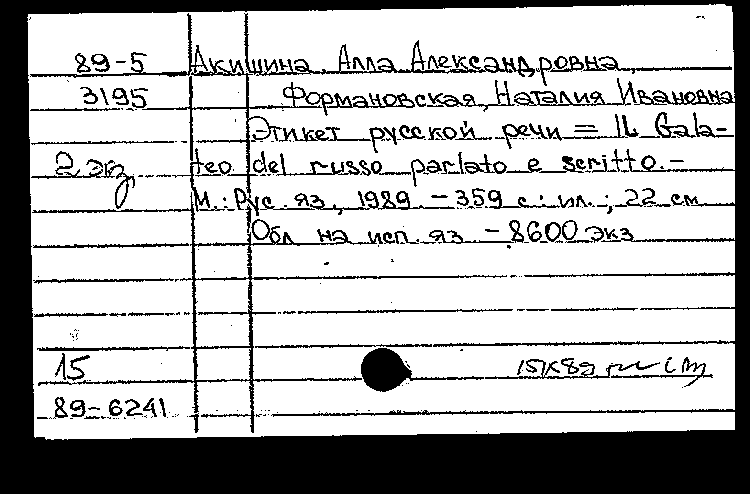 89-5 Акишина Алла Александровна,
3195 Формановская, Наталия Ивановна
Этикет русской речи = Il Gala-
2 экз teo del russo parlato e scritto. -
М.: Рус. яз., 1989. - 359 с.: ил.; 22 см
Обл. на исп. яз. - 8600 экз
15
89-6241